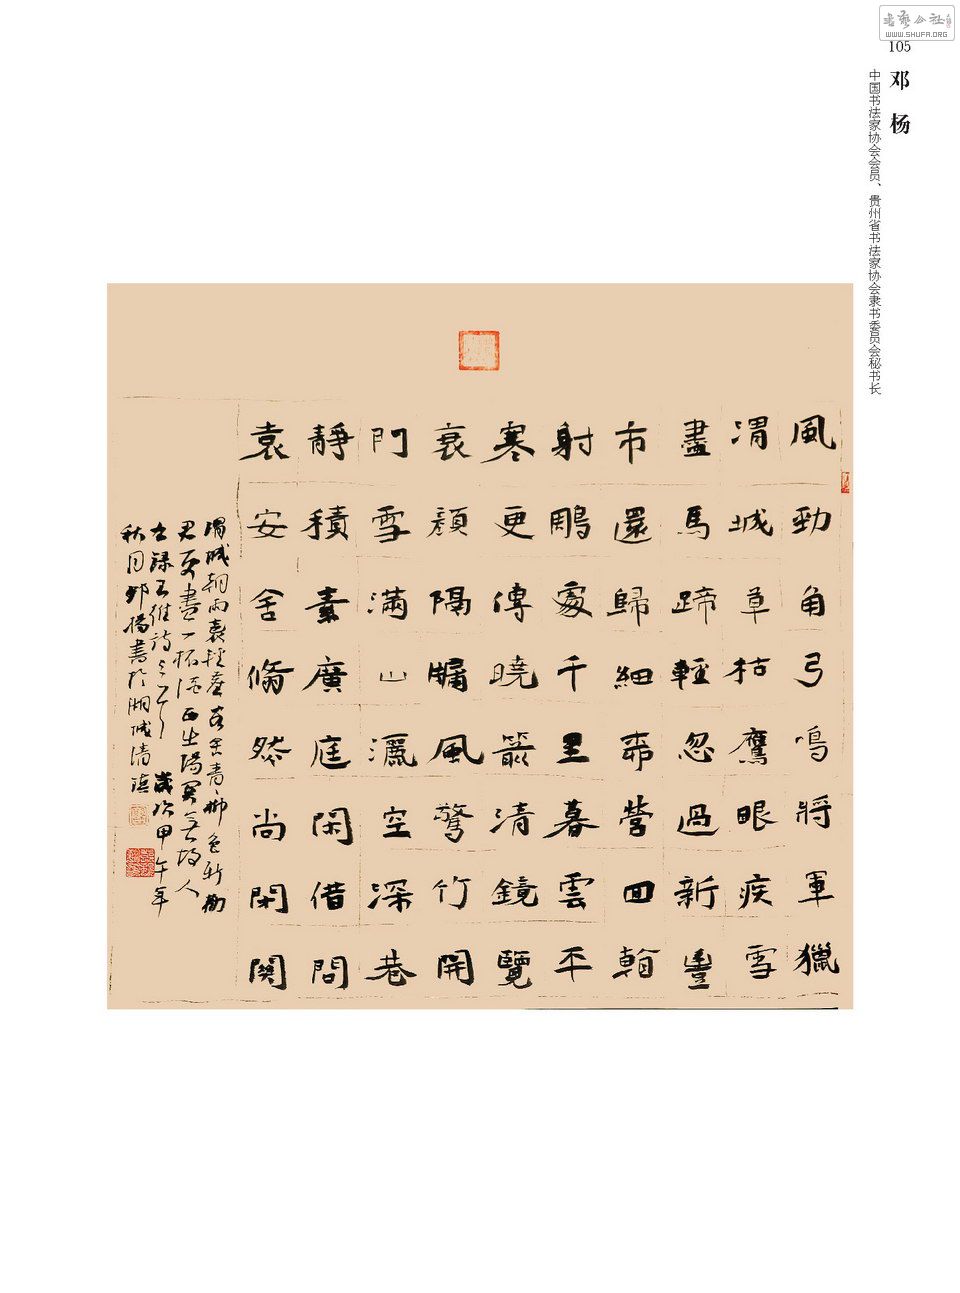 書藝公社
WWW.SHUFA.ORG
105
邓 杨
中国书法家协会会员、贵州省书法家协会隶书委员会秘书长
風勁角弓鳴將軍獵
渭城草枯鷹眼疾雪
盡馬蹄輕忽過新豐
市還歸細柳營回看
射鵰處千里暮雲平
寒更傳曉箭清鏡覽
衰顏隔牖風驚竹開
門雪滿山灑空深巷
靜積素廣庭閑借問
袁安舍翛然尚閉關
渭城朝雨裛輕塵客舍青〻柳色新勸
君更盡一杯酒西出陽關無故人
右錄王維詩三首歲次甲午年
秋月鄧楊書於湖城清